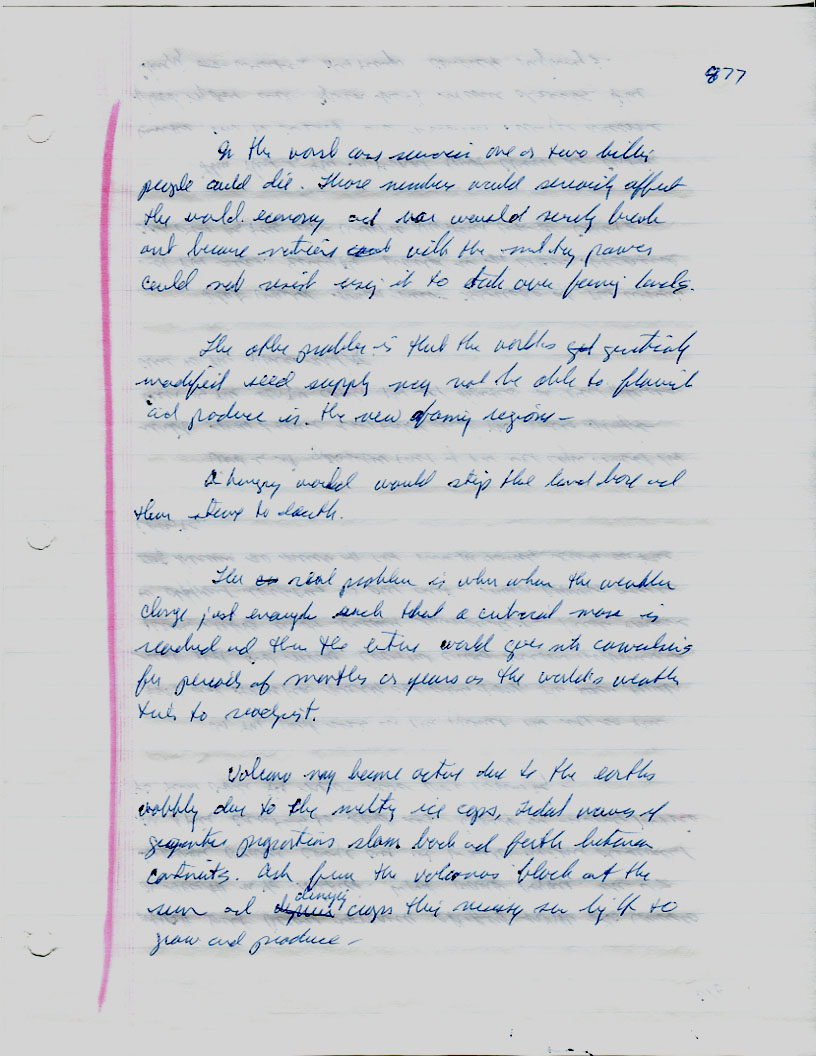 877
In the worst case scenario one or two billion
people could die. Those numbers would seriously affect
the world economy and war would surely break
out because nations with the military power
could not resist using it to take over farming lands.
The other problem is that the worlds genetically
modified seed supply may not be able to flourish
and produce in the new farming regions –
A hungry world would strip the land bare and
then starve to death.
The real problem is when when the weather
change just enough such that a critical mass is
reached and then the entire world goes into convulsions
for periods of months or years as the world's weather
tries to readjust.
Volcano may become active due to the earths
wobbly due to the melting ice caps, tidal waves of
gigantic proportions slam back and forth between
continents. Ash from the volcanos block out the
sun and denying crops their necessary sun light to
grow and produce –